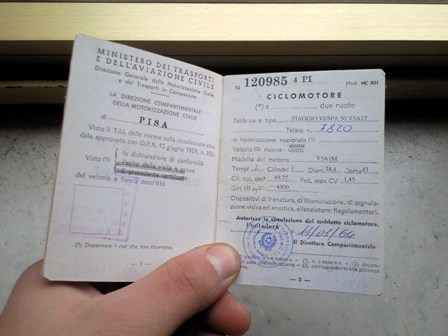 MINISTERO DEI TRASPORTI
E DELL'AVIAZIONE CIVILE
Direzione Generale della Motorizzazione Civile
e dei Trasporti in Concessione
LA DIREZIONE COMPARTIMENTALE
DELLA MOTORIZZAZIONE CIVILE
di
PISA
Visto il T.U. delle norme sulla circolazione
approvato con D.P.R. 15 giugno 1959, n. 393;
Visto (*)
la dichiarazione di conformità
del veicolo a fianco descritto
(*) Depennare i
— 2 —
N 120985 4 PI
Mod. MC 821
CICLOMOTORE
(*) a due ruote
Fabbrica e tipo PIAGGIO VESPA 50 V5A1T
Telaio n. 7820
di fabbricazione nazionale (*)
Veicolo (*) nuovo
Modello del motore V5A1M
Tempi 2 Cilindri 1 Diam. 38,4 Corsa 43
Cil. tot. cm³ 49,77 Pot. max CV 1,45
4500
Dispositivi di frenatura, di illuminazione, di segnalazione
visiva ed acustica, silenziatore: Regolamentari.
Autorizza la circolazione del suddetto ciclomotore.
Pontedera
Il Direttore Compartimentale
— 3 —